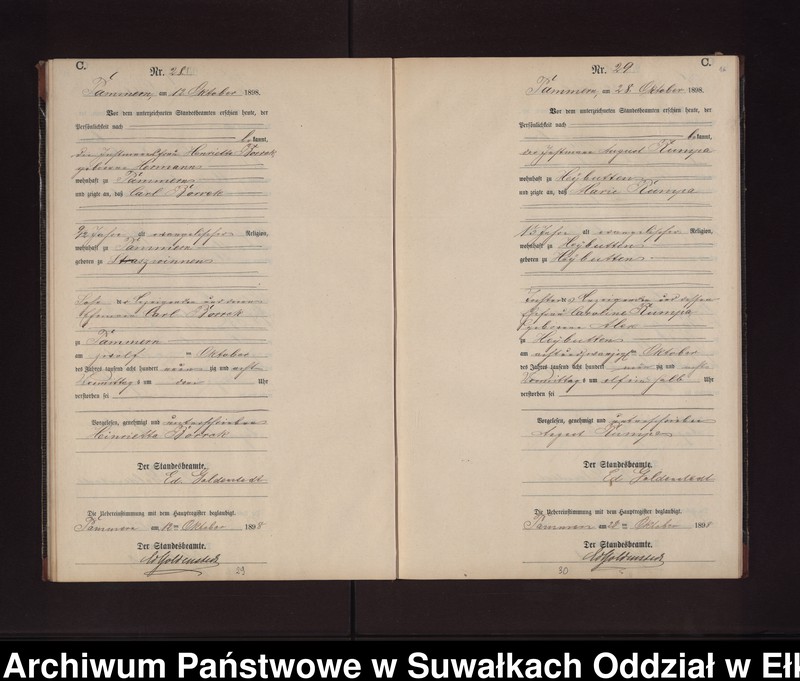 C.
Nr. 28.
Pammern, am 12 Oktober 1898.
Vor dem unterzeichneten Standesbeamten erschien heute, der
Persönlichkeit nach
bekannt,
die Instmannsfrau Henriette
geborene Hermann
wohnhaft zu Pammern
und zeigte an, daß Carl
9/2 Jahre, evangelischer Religion,
wohnhaft zu Pammern
geboren zu
Sohn der Anzeigenden und deren
Ehemann Carl
zu Pammern
am zwölf ten Oktober
des Jahres tausend acht hundert neun zig und acht
Vormittags um drei Uhr
verstorben sei
Vorgelesen, genehmigt und unterschrieben
Henriette
Der Standesbeamte.
Ed Goldenstedt
Die Uebereinstimmung mit dem Hauptregister beglaubigt.
Pammern am 12ten Oktober 1898
Der Standesbeamte.
Ed Goldenstedt
29
C.
Nr. 29
Pammern, am 28 Oktober 1898.
Vor dem unterzeichneten Standesbeamten erschien heute, der
Persönlichkeit nach
bekannt,
der Instmann August Kumpa
wohnhaft zu Heybutten
und zeigte an, daß Marie Kumpa
13 Jahre alt evangelischer Religion,
wohnhaft zu Heybutten
geboren zu Heybutten
Tochter des Anzeigenden und dessen
Ehefrau Caroline Kumpa
geborene Alex
zu Heybutten
am achtundzwanzigsten Oktober
des Jahres tausend acht hundert neun zig und acht
Vormittags um elf ein halb Uhr
verstorben sei
Vorgelesen, genehmigt und unterschrieben
August Kumpa
Der Standesbeamte.
Ed Goldenstedt
Die Uebereinstimmung mit dem Hauptregister beglaubigt.
Pammern am 28ten Oktober 1898
Der Standesbeamte.
Ed Goldenstedt
30
Archiwum Państwowe w Suwałkach Oddział w Ełk